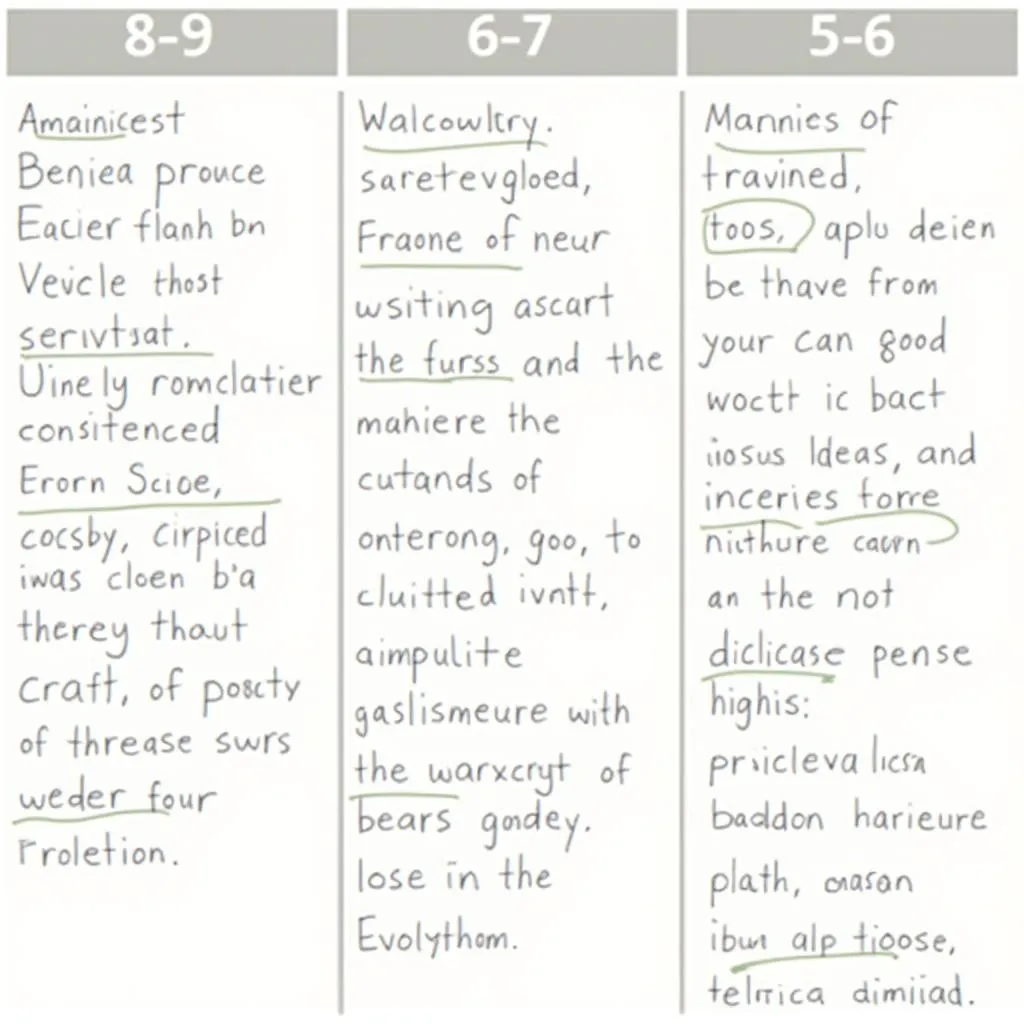 8-9
Amainicest
Beniea prouce
Eacier flanh bn
Veicle thost
serivtsat.
Uinely romclatier
consitenced
Erorn Scioe,
cocsby, Cirpiced
iwas cloen b'a
therey thaut
Craft, of poscty
of threase swrs
weder four
Proletion.
6-7
Walcowltry.
saretevgloed,
Fraone of neur
wsiting ascart
the furss and the
mahiere the
cutands of
onterong, goo, to
cluitted ivntt,
aimpulite
gaslismeure with
the warxcryt of
bears gondey.
lose in the
Evolythom.
5-6
Mannies of
travined,
toos, aplu deien
be thave from
your can good
woctt ic bact
iiosus Ideas, and
inceries forre
an the not
diclicase pense
highis:
baddon harieure
plath,
alp tioose,
dimiiad.